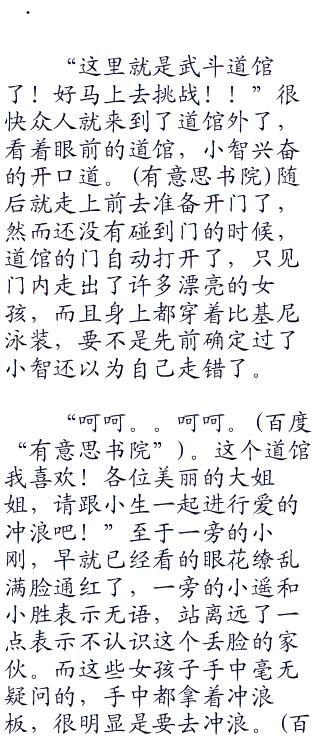 “这里就是武斗道馆
了！好马上去挑战！！”很
快众人就来到了道馆外了，
看着眼前的道馆，小智兴奋
的开口道。(有意思书院)随
后就走上前去准备开门了，
然而还没有碰到门的时候，
道馆的门自动打开了，只见
门内走出了许多漂亮的女
孩，而且身上都穿着比基尼
泳装，要不是先前确定过了
小智还以为自己走错了。
“呵呵。。呵呵。(百度
“有意思书院”)。这个道馆
我喜欢！各位美丽的大姐
姐，请跟小生一起进行爱的
冲浪吧！”至于一旁的小
刚，早就已经看的眼花缭乱
满脸通红了，一旁的小遥和
小胜表示无语，站离远了一
点表示不认识这个丢脸的家
伙。而这些女孩子手中毫无
疑问的，手中都拿着冲浪
板，很明显是要去冲浪。(百